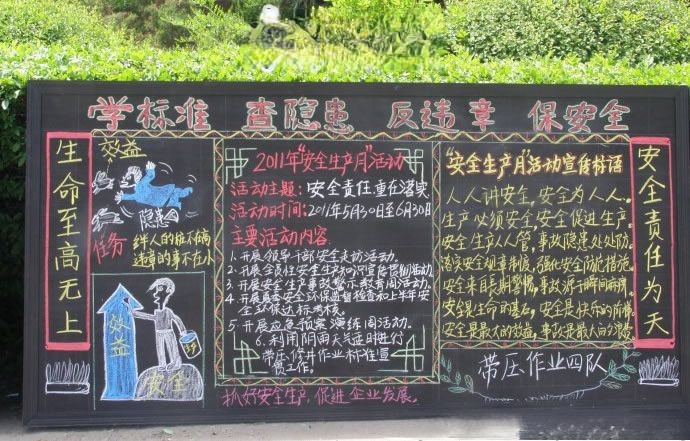 学标准 查隐患 反违章 保安全
生命至高无上
效益
隐患
任务
绊人的桩不在高
违章的事不在小
效益
安全
2011年“安全生产月”活动
活动主题:安全责任重在落实
活动时间:2011年5月30日至6月30日
主要活动内容:
1.开展领导干部安全走访活动。
2.开展全员性安全生产知识宣传周活动
3.开展安全生产事故警示教育周活动。
4.开展員套安全环保监督检查和上半年安
全环保达标考核。
5.开展应急预案演练周活动。
6.利用阴雨天气适时进行
带压修井作业标准宣
贯工作。
抓好安全生产,促进企业发展。
“安全生产月”活动宣传标语
人人讲安全,安全为人人。
生产必须安全,安全促进生产。
安全生产人人管,事故隐患处处防。
落实安全规章制度,强化安全防范措施。
安全来自长期警惕,事故源于瞬间麻痹。
安全是生命的基石,安全是快乐的阶梯。
安全是最大的效益,事故是最大的浪费
带压作业四队
安全责任为天